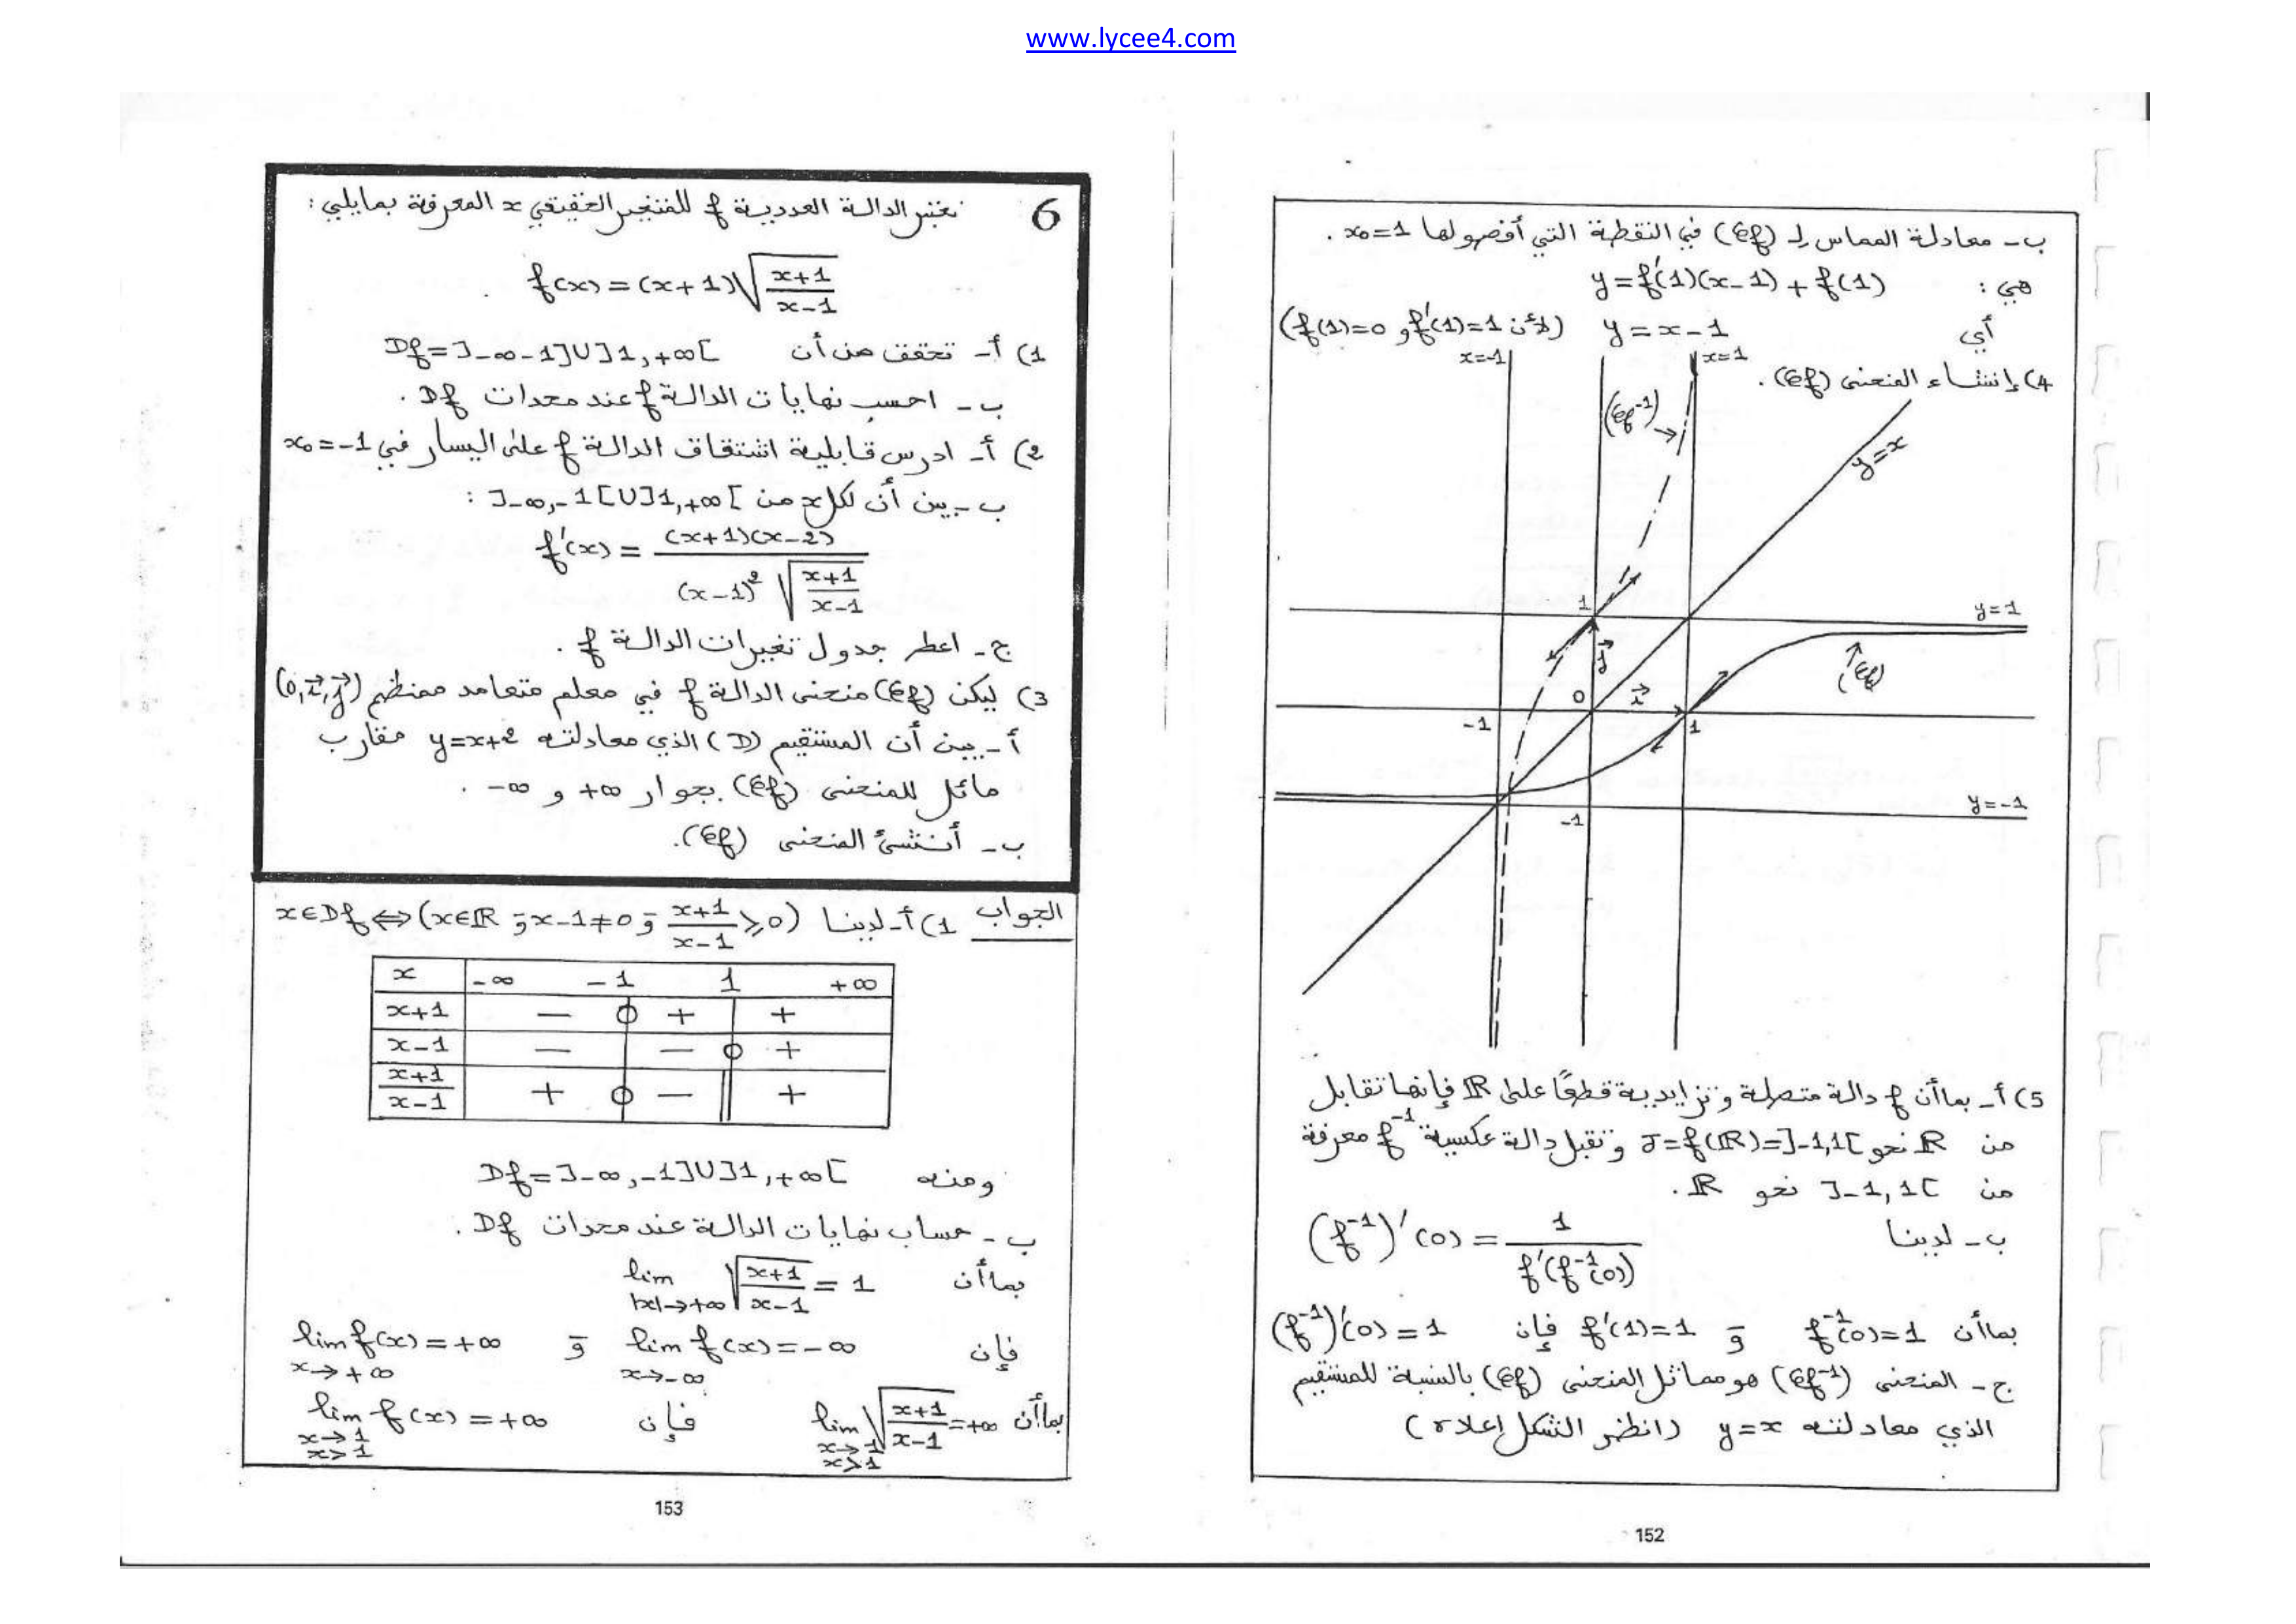 www.lycee4.com
ب - معادلة المماس لـ (𝒞f) في النقطة التي أفصولها x₀=1 .
هي : y = f'(1)(x-1) + f(1)
أي y = x-1 (لأن f'(1)=1 و f(1)=0)
4) إنشاء المنحنى (𝒞f) .
x=-1
x=1
(𝒞f⁻¹)
y=x
1
y=1
j
(𝒞f)
0
i
-1
1
-1
y=-1
5) أ - بما أن f دالة متصلة وتزايدية قطعًا على ℝ فإنها تقابل
من ℝ نحو J=f(ℝ)=]-1,1[ وتقبل دالة عكسية f⁻¹ معرفة
من ]-1,1[ نحو ℝ .
ب - لدينا (f⁻¹)'(0) = 1/f'(f⁻¹(0))
بما أن f⁻¹(0)=1 و f'(1)=1 فإن (f⁻¹)'(0)=1
ج - المنحنى (𝒞f⁻¹) هو مماثل المنحنى (𝒞f) بالنسبة للمستقيم
الذي معادلته y=x (انظر الشكل اعلاه)
152
6 نعتبر الدالة العددية f للمتغير الحقيقي x المعرفة بمايلي :
f(x) = (x+1)√((x+1)/(x-1)) .
1) أ - تحقق من أن Df=]-∞-1]U]1,+∞[
ب - احسب نهايات الدالة f عند محدات Df .
2) أ - ادرس قابلية اشتقاق الدالة f على اليسار في x₀=-1
ب - بين أن لكل x من ]-∞,-1[U]1,+∞[ :
f'(x) = (x+1)(x-2)/((x-1)²√((x+1)/(x-1)))
ج - اعط جدول تغيرات الدالة f .
3) ليكن (𝒞f) منحنى الدالة f في معلم متعامد ممنظم (0,i,j)
أ - بين أن المستقيم (D) الذي معادلته y=x+2 مقارب
مائل للمنحنى (𝒞f) بجوار +∞ و -∞ .
ب - أنشئ المنحنى (𝒞f).
الجواب 1) أ - لدينا x∈Df⇔(x∈ℝ و x-1≠0 و (x+1)/(x-1)≥0)
x -∞ -1 1 +∞
x+1 - 0 + +
x-1 - - 0 +
(x+1)/(x-1) + 0 - || +
ومنه Df=]-∞,-1]U]1,+∞[
ب - حساب نهايات الدالة عند محدات Df .
بما أن lim |x|→+∞ √((x+1)/(x-1)) = 1
فإن lim x→-∞ f(x)=-∞ و lim x→+∞ f(x)=+∞
بما أن lim x→1 x>1 √((x+1)/(x-1))=+∞ فإن lim x→1 x>1 f(x)=+∞
153